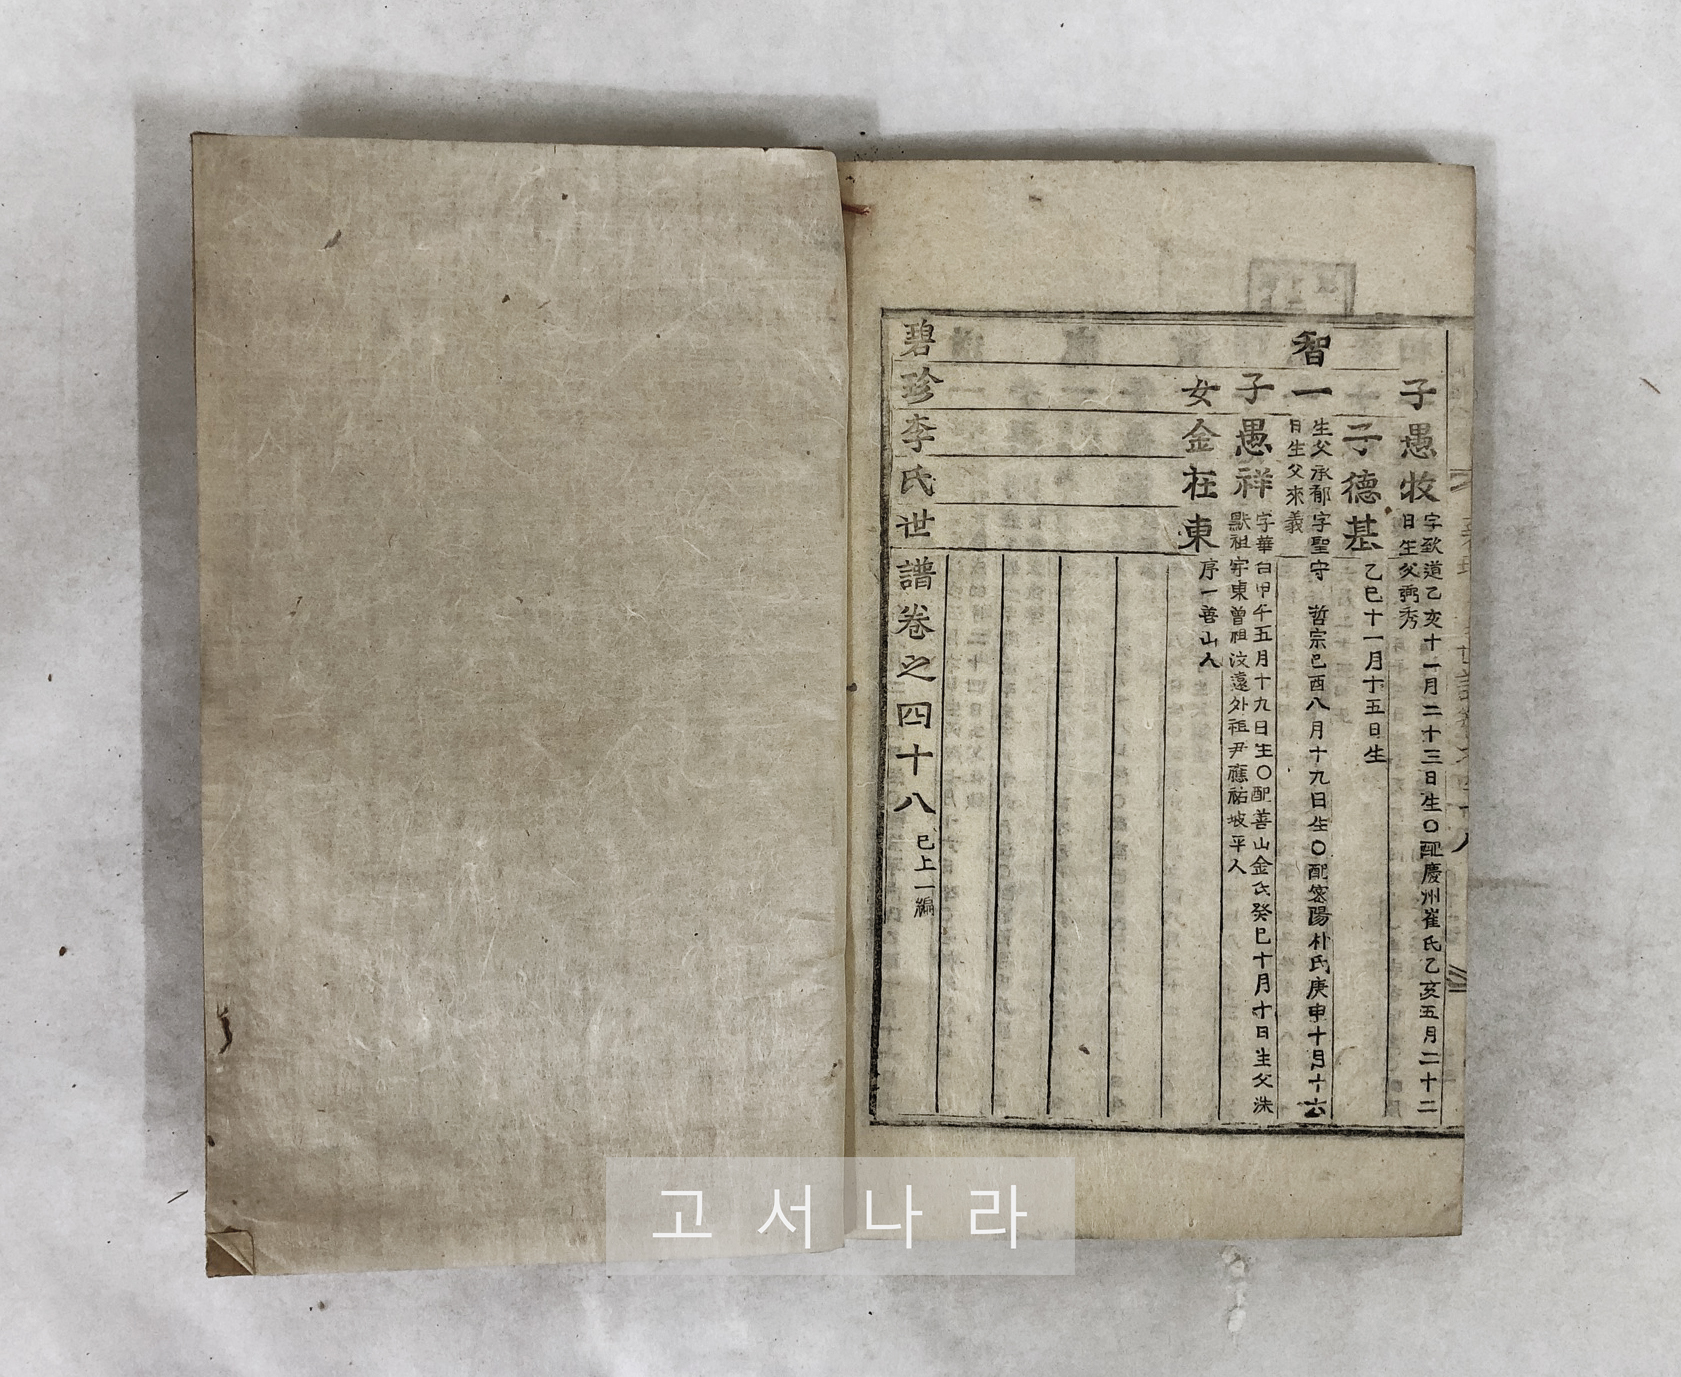 子愚牧 字致道乙亥十一月二十三日生○配慶州崔氏乙亥五月二十二
日生父弼秀
子德基 乙巳十一月十五日生
智一 生父承郁字聖守 哲宗己酉八月十九日生○配密陽朴氏庚申十月十六
日生父來義
子愚祥 字華白甲午五月十九日生○配善山金氏癸巳十月十日生父洙
默祖宇東曾祖汶遠外祖尹應祐坡平人
女金在東 序一善山人
碧珍李氏世譜卷之四十八 已上一編
고서나라